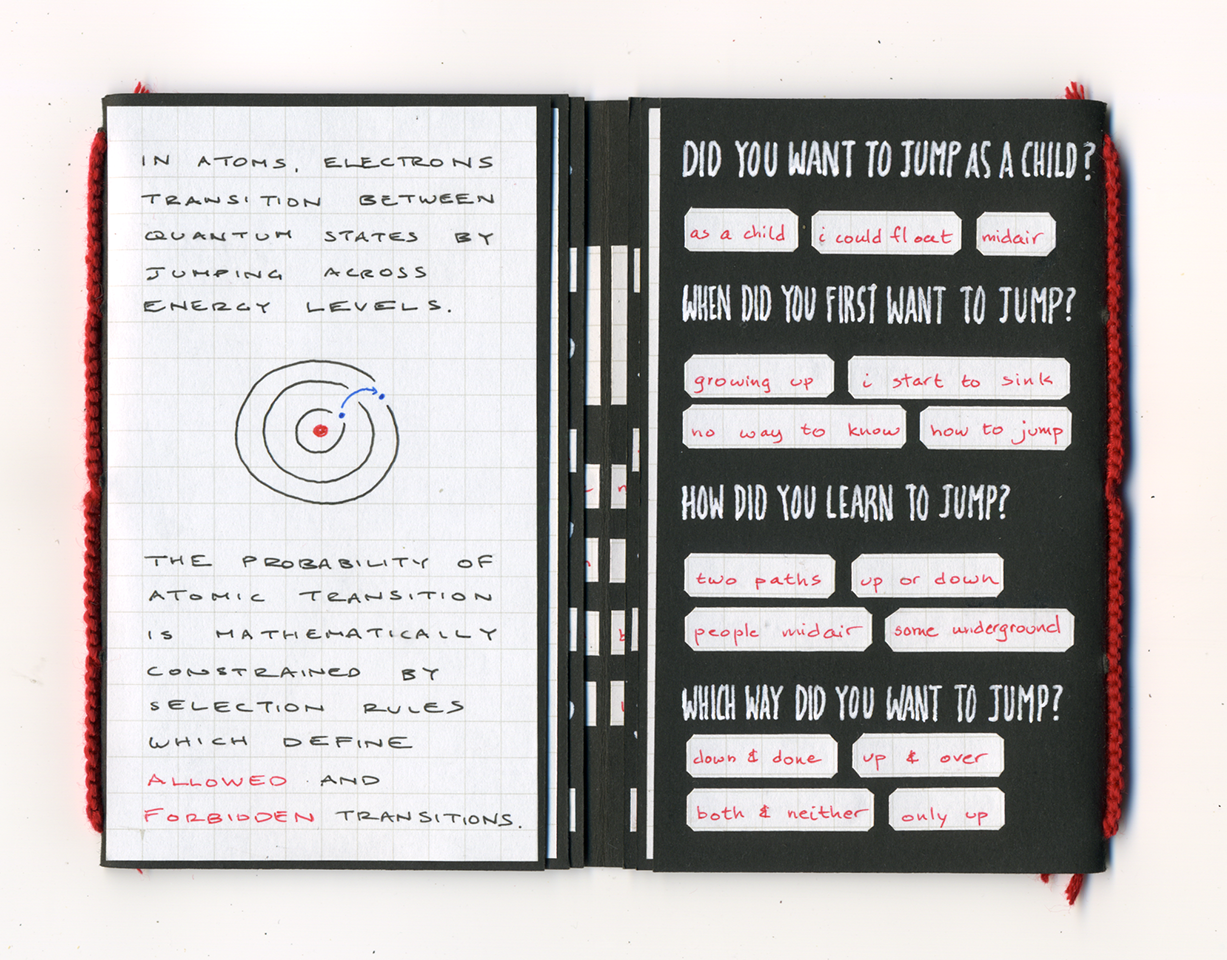 IN ATOMS, ELECTRONS
TRANSITION BETWEEN
QUANTUM STATES BY
JUMPING ACROSS
ENERGY LEVELS.
THE PROBABILITY OF
ATOMIC TRANSITION
IS MATHEMATICALLY
CONSTRAINED BY
SELECTION RULES
WHICH DEFINE
ALLOWED AND
FORBIDDEN TRANSITIONS.
DID YOU WANT TO JUMP AS A CHILD?
as a child i could float midair
WHEN DID YOU FIRST WANT TO JUMP?
growing up i start to sink
no way to know how to jump
HOW DID YOU LEARN TO JUMP?
two paths up or down
people midair some underground
WHICH WAY DID YOU WANT TO JUMP?
down & done up & over
both & neither only up